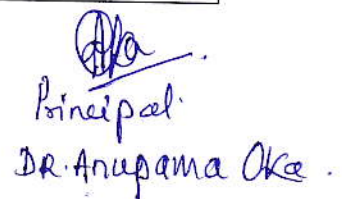 Oka
Principal.
DR. Anupama Oka.